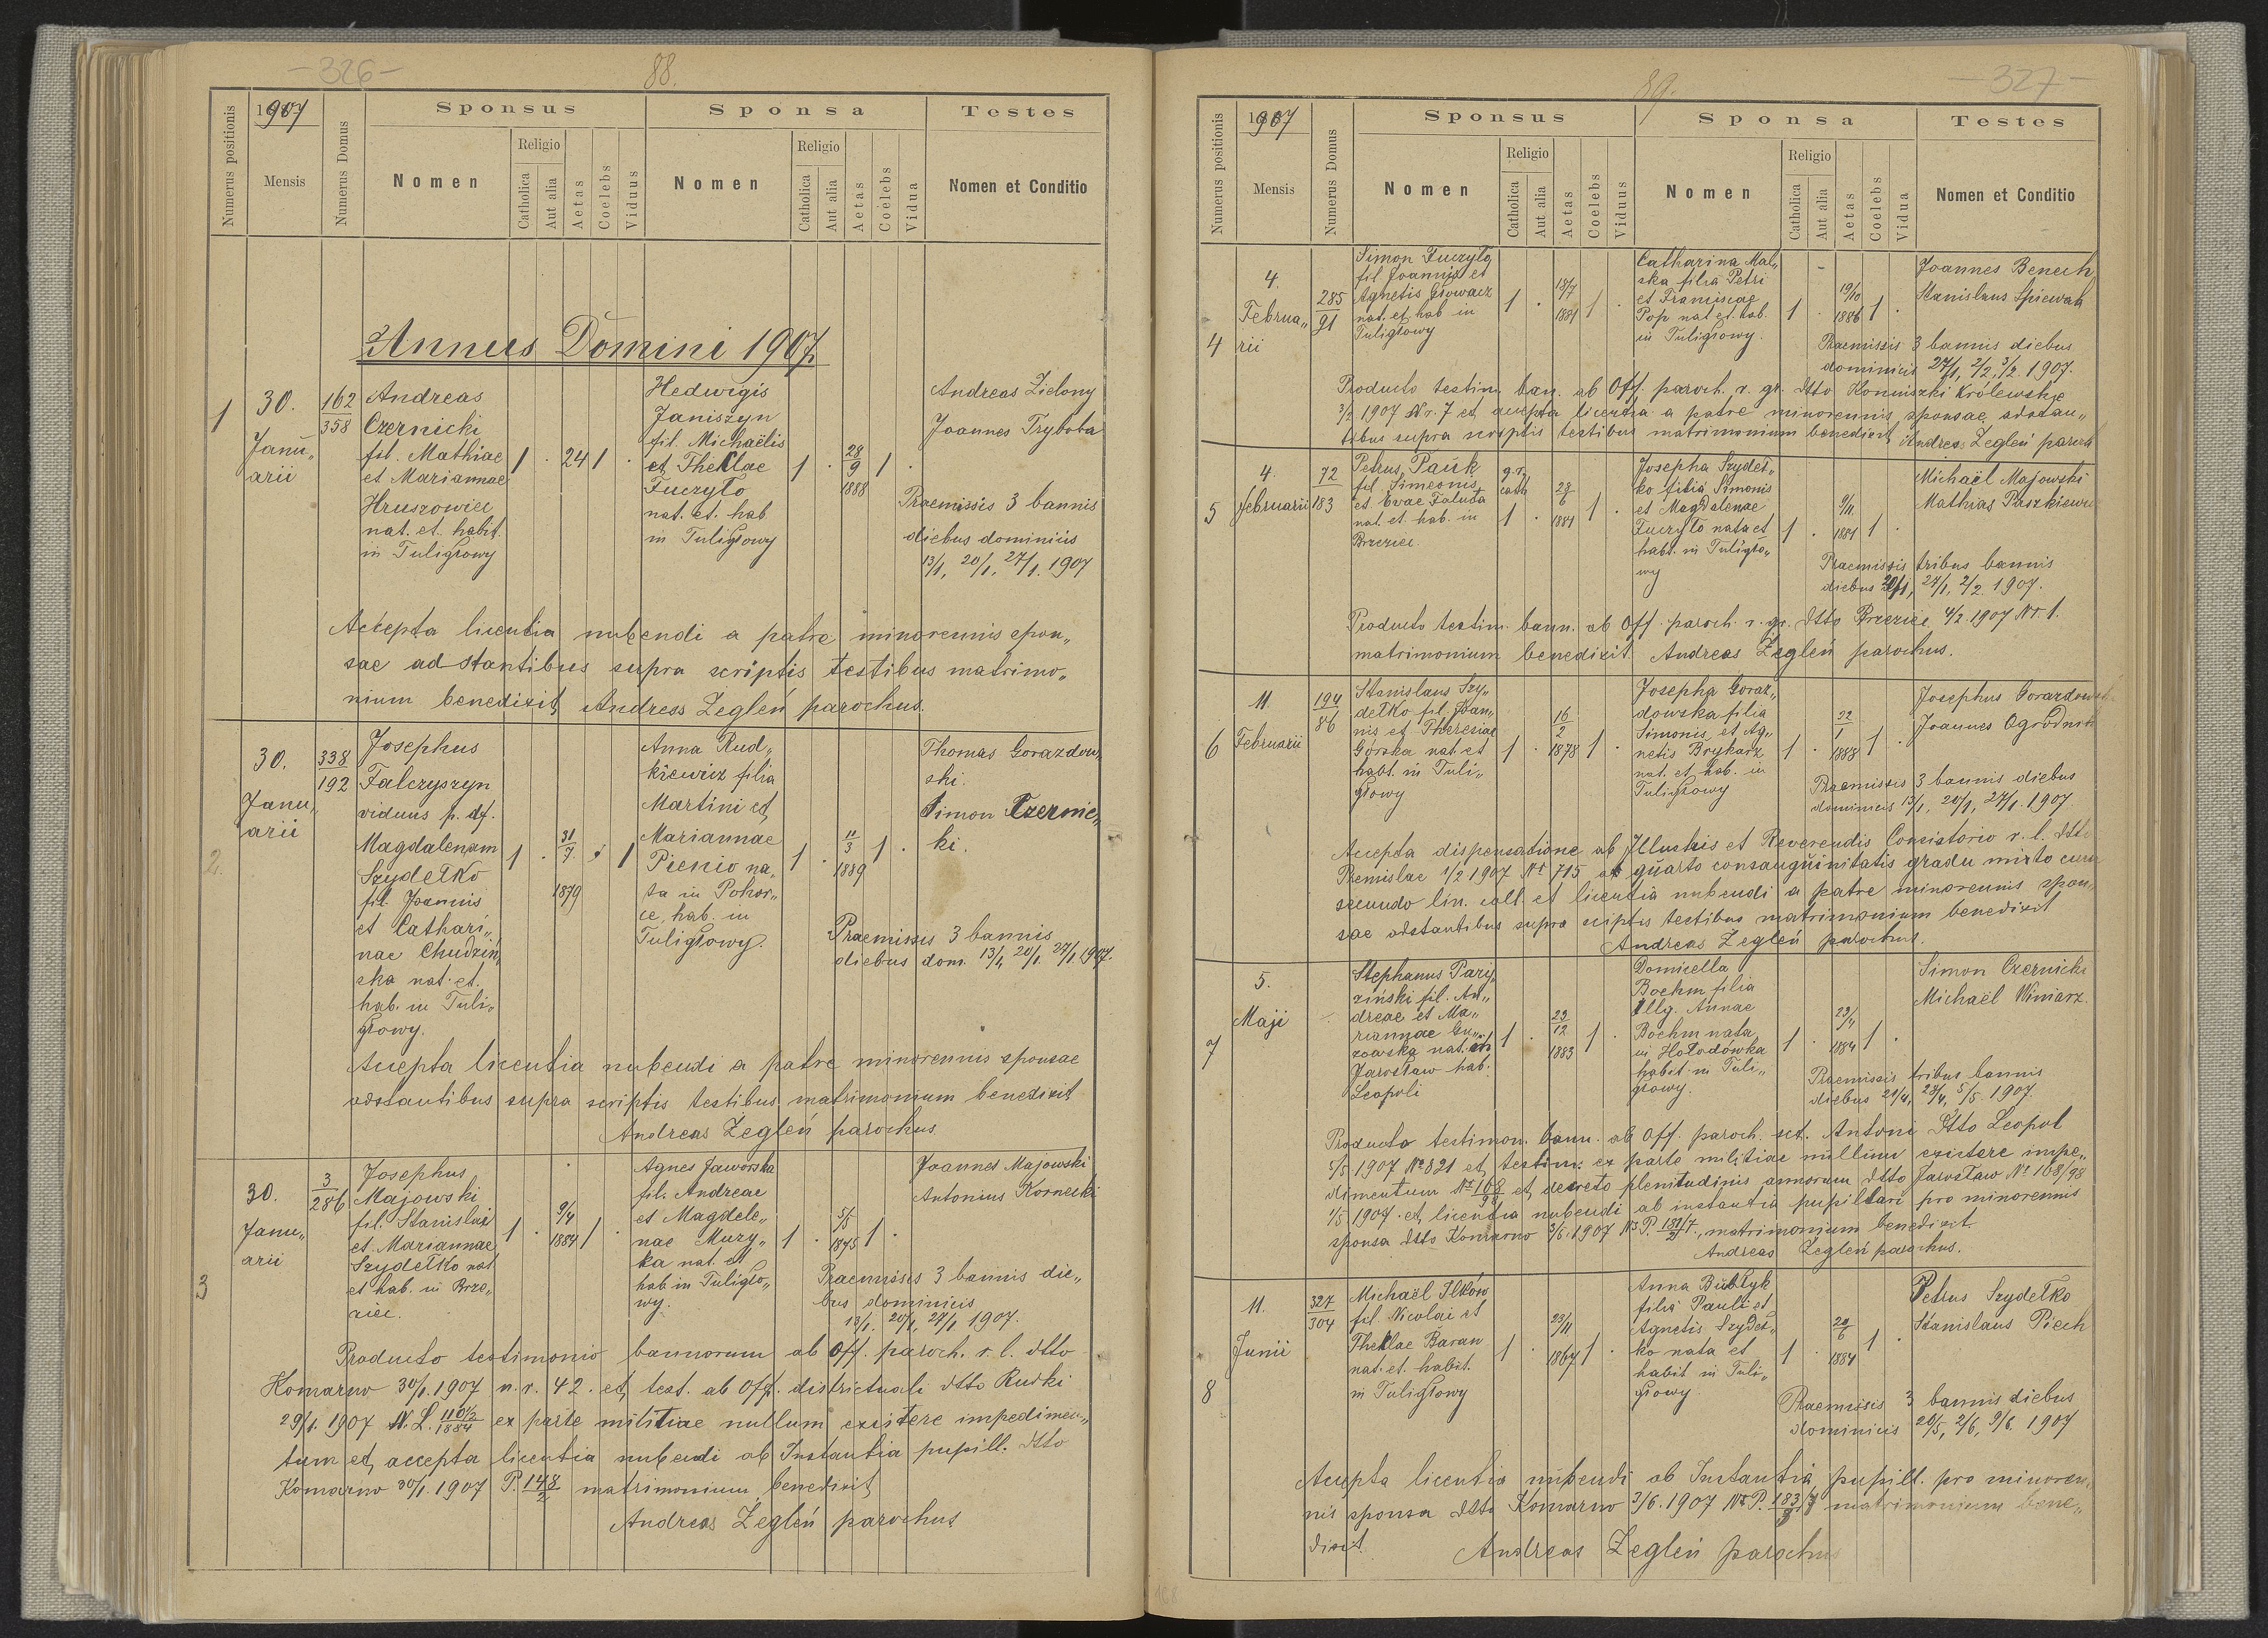 -326-
88.
Numerus positionis
1907
Mensis
Numerus Domus
Sponsus
Nomen
Religio
Catholica
Aut alia
Aetas
Coelebs
Viduus
Sponsa
Nomen
Religio
Catholica
Aut alia
Aetas
Coelebs
Vidua
Testes
Nomen et Conditio
Annus Domini 1907
1
30.
Janu„
arii
162
358
Andreas
Czernicki
fil. Mathiae
et Mariannae
Hruszowiec
nat. et. habit.
in Tuligłowy
1 · 24 1 ·
Hedwigis
Janiszyn
fil. Michaëlis
et Theklae
Fuczyło
nat. et. hab
in Tuligłowy
1 · 28/9 1888 1 ·
Andreas Zielony
Joannes Trybuła
Praemissis 3 bannis
diebus dominicis
13/1, 20/1, 27/1. 1907
Accepta licentia nubendi a patre minorennis spon„
sae adstantibus supra scriptis testibus matrimo„
nium benedixit Andreas Żegleń parochus.
2.
30.
Janu„
arii
338
192
Josephus
Falczyszyn
viduus p. df.
Magdalenam
Szydełko
fil. Joannis
et Cathari„
nae Chudziń„
ska nat. et.
hab. in Tuli„
głowy.
1 · 31/7. 1879 1
Anna Rud„
kiewicz filia
Martini et
Mariannae
Pienio na„
ta in Pohor„
ce, hab. in
Tuligłowy.
1 · 11/3 1889 1 ·
Thomas Gorazdow„
ski.
Simon Czernic„
ki.
Praemissis 3 bannis
diebus dom. 13/1, 20/1. 27/1. 1907.
Accepta licentia nubendi a patre minorennis sponsae
adstantibus supra scriptis testibus matrimonium benedixit
Andreas Żegleń parochus
3
30.
Janu„
arii
3
286
Josephus
Majowski
fil. Stanislai
et Mariannae
Szydełko nat
et hab. in Brze„
ziec.
1 · 9/4 1884 1 ·
Agnes Jaworska
fil. Andreae
et Magdale„
nae Muzy„
ka nat. et
hab in Tuligło„
wy.
1 · 5/5 1875 1 ·
Joannes Majowski
Antonius Kornecki
Praemissis 3 bannis die„
bus dominicis
13/1. 20/1, 27/1 1907.
Producto testimonio bannorum ab Off. paroch. r. l. dtto
Komarno 30/1. 1907 n. r. 42. et test. ab Off. districtuali dtto Rudki
29/1. 1907 N. L. 110/2/1884 ex parte militiae nullum existere impedimen„
tum et accepta licentia nubendi ab Instantia pupill. dtto
Komarno 30/1. 1907 P. 148/2 matrimonium benedixit
Andreas Żegleń parochus
89.
-327-
Numerus positionis
1907
Mensis
Numerus Domus
Sponsus
Nomen
Religio
Catholica
Aut alia
Aetas
Coelebs
Viduus
Sponsa
Nomen
Religio
Catholica
Aut alia
Aetas
Coelebs
Vidua
Testes
Nomen et Conditio
4
4.
Februa„
rii
285
91
Simon Fuczyło
fil. Joannis et
Agnetis Głowacz
nat. et. hab in
Tuligłowy
1 · 18/7 1881 1 ·
Catharina Mal„
ska filia Petri
et Franciscae
Pop nat et. hab.
in Tuligłowy.
1 · 19/10 1886 1 ·
Joannes Benech
Stanislaus Śpiewak
Praemissis 3 bannis diebus
dominicis 27/1, 2/2, 3/2. 1907.
Producto testim. ban. ab Off. paroch. r. gr. dtto Koniuszki Królewskie
3/2 1907 Nr. 7 et accepta licentia a patre minorennis sponsae adstan„
tibus supra scriptis testibus matrimonium benedixit Andreas Żegleń paroch
5
4.
Februarii
72
183
Petrus Pauk
fil. Simeonis
et Evae Faluta
nat. et. hab. in
Brzeziec.
g. r.
cath
1 · 28/6 1881 1 ·
Josepha Szydeł„
ko filia Simonis
et Magdalenae
Fuczyło nata et
habt. in Tuligło„
wy
1 · 9/11 1881 1 ·
Michaël Majowski
Mathias Paszkiewicz
Praemissis tribus bannis
diebus 20/1, 27/1, 2/2. 1907.
Producto testim. bann. ab Off. paroch. r. gr. dtto Brzeziec 4/2. 1907 Nr. 1.
matrimonium benedixit Andreas Żegleń parochus.
6
11
Februarii
194
86
Stanislaus Szy„
dełko fil. Joan„
nis et Theresiae
Górska nat et
habt. in Tuli„
głowy
1 · 16/2 1878 1 ·
Josepha Goraz„
dowska filia
Simonis et Ag„
netis Brykarz
nat. et. hab. in
Tuligłowy
1 · 22/1 1888 1 ·
Josephus Gorazdowski
Joannes Ogrodnik
Praemissis 3 bannis diebus
dominicis 13/1, 20/1, 27/1. 1907
Accepta dispensatione ab Illustris et Reverendis Consistorio r. l. dtto
Premislae 1/2 1907 Nr 715 at quarto consanguinitatis gradu mixto cum
secundo lin. coll. et licentia nubendi a patre minorennis spon„
sae adstantibus supra sciptis testibus matrimonium benedixit
Andreas Żegleń parochus.
7
5.
Maji
Stephanus Pary„
ziński fil. An„
dreae et Ma„
riannae Gu„
zowska nat. in
Jarosław hab.
Leopoli
1 · 23/12 1883 1 ·
Domicella
Boehm filia
Illg. Annae
Boehm nata
in Hołodówka
habit. in Tuli„
głowy.
1 · 23/4 1884 1 ·
Simon Czernicki
Michaël Winiarz
Praemissis tribus bannis
diebus 21/4, 28/4, 5/5. 1907.
Producto testimon. bann. ab Off. paroch. sct. Antoni dtto Leopol
5/5 1907 Nº 821 et testim: ex parte militiae nullum existere impe„
dimentum Nr 168/98 et decreto plenitudinis annorum dtto Jarosław Nº 168/98
1/5 1907. et licentia nubendi ab instantia pupillari pro minorennis
sponsa dtto Komarno 3/5. 1907 Nº P. 181/2/7., matrimonium benedixit
Andreas Żegleń parochus.
8
11.
Junii
327
304
Michaël Ilków
fil. Nicolai et
Theklae Baran
nat. et. habit.
in Tuligłowy
1 · 23/11 1867 1 ·
Anna Bubłyk
filia Pauli et
Agnetis Szydeł„
ko nata et
habit in Tuli„
głowy
1 · 20/6 1884 1 ·
Petrus Szydełko
Stanislaus Piech
Praemissis 3 bannis diebus
dominicis 26/5, 2/6, 9/6. 1907
Accepta licentia nubendi ab Instantia pupill. pro minoren„
nis sponsa dtto Komarno 3/6. 1907 Nr P. 183/7 matrimonium bene„
dixit. Andreas Żegleń parochus